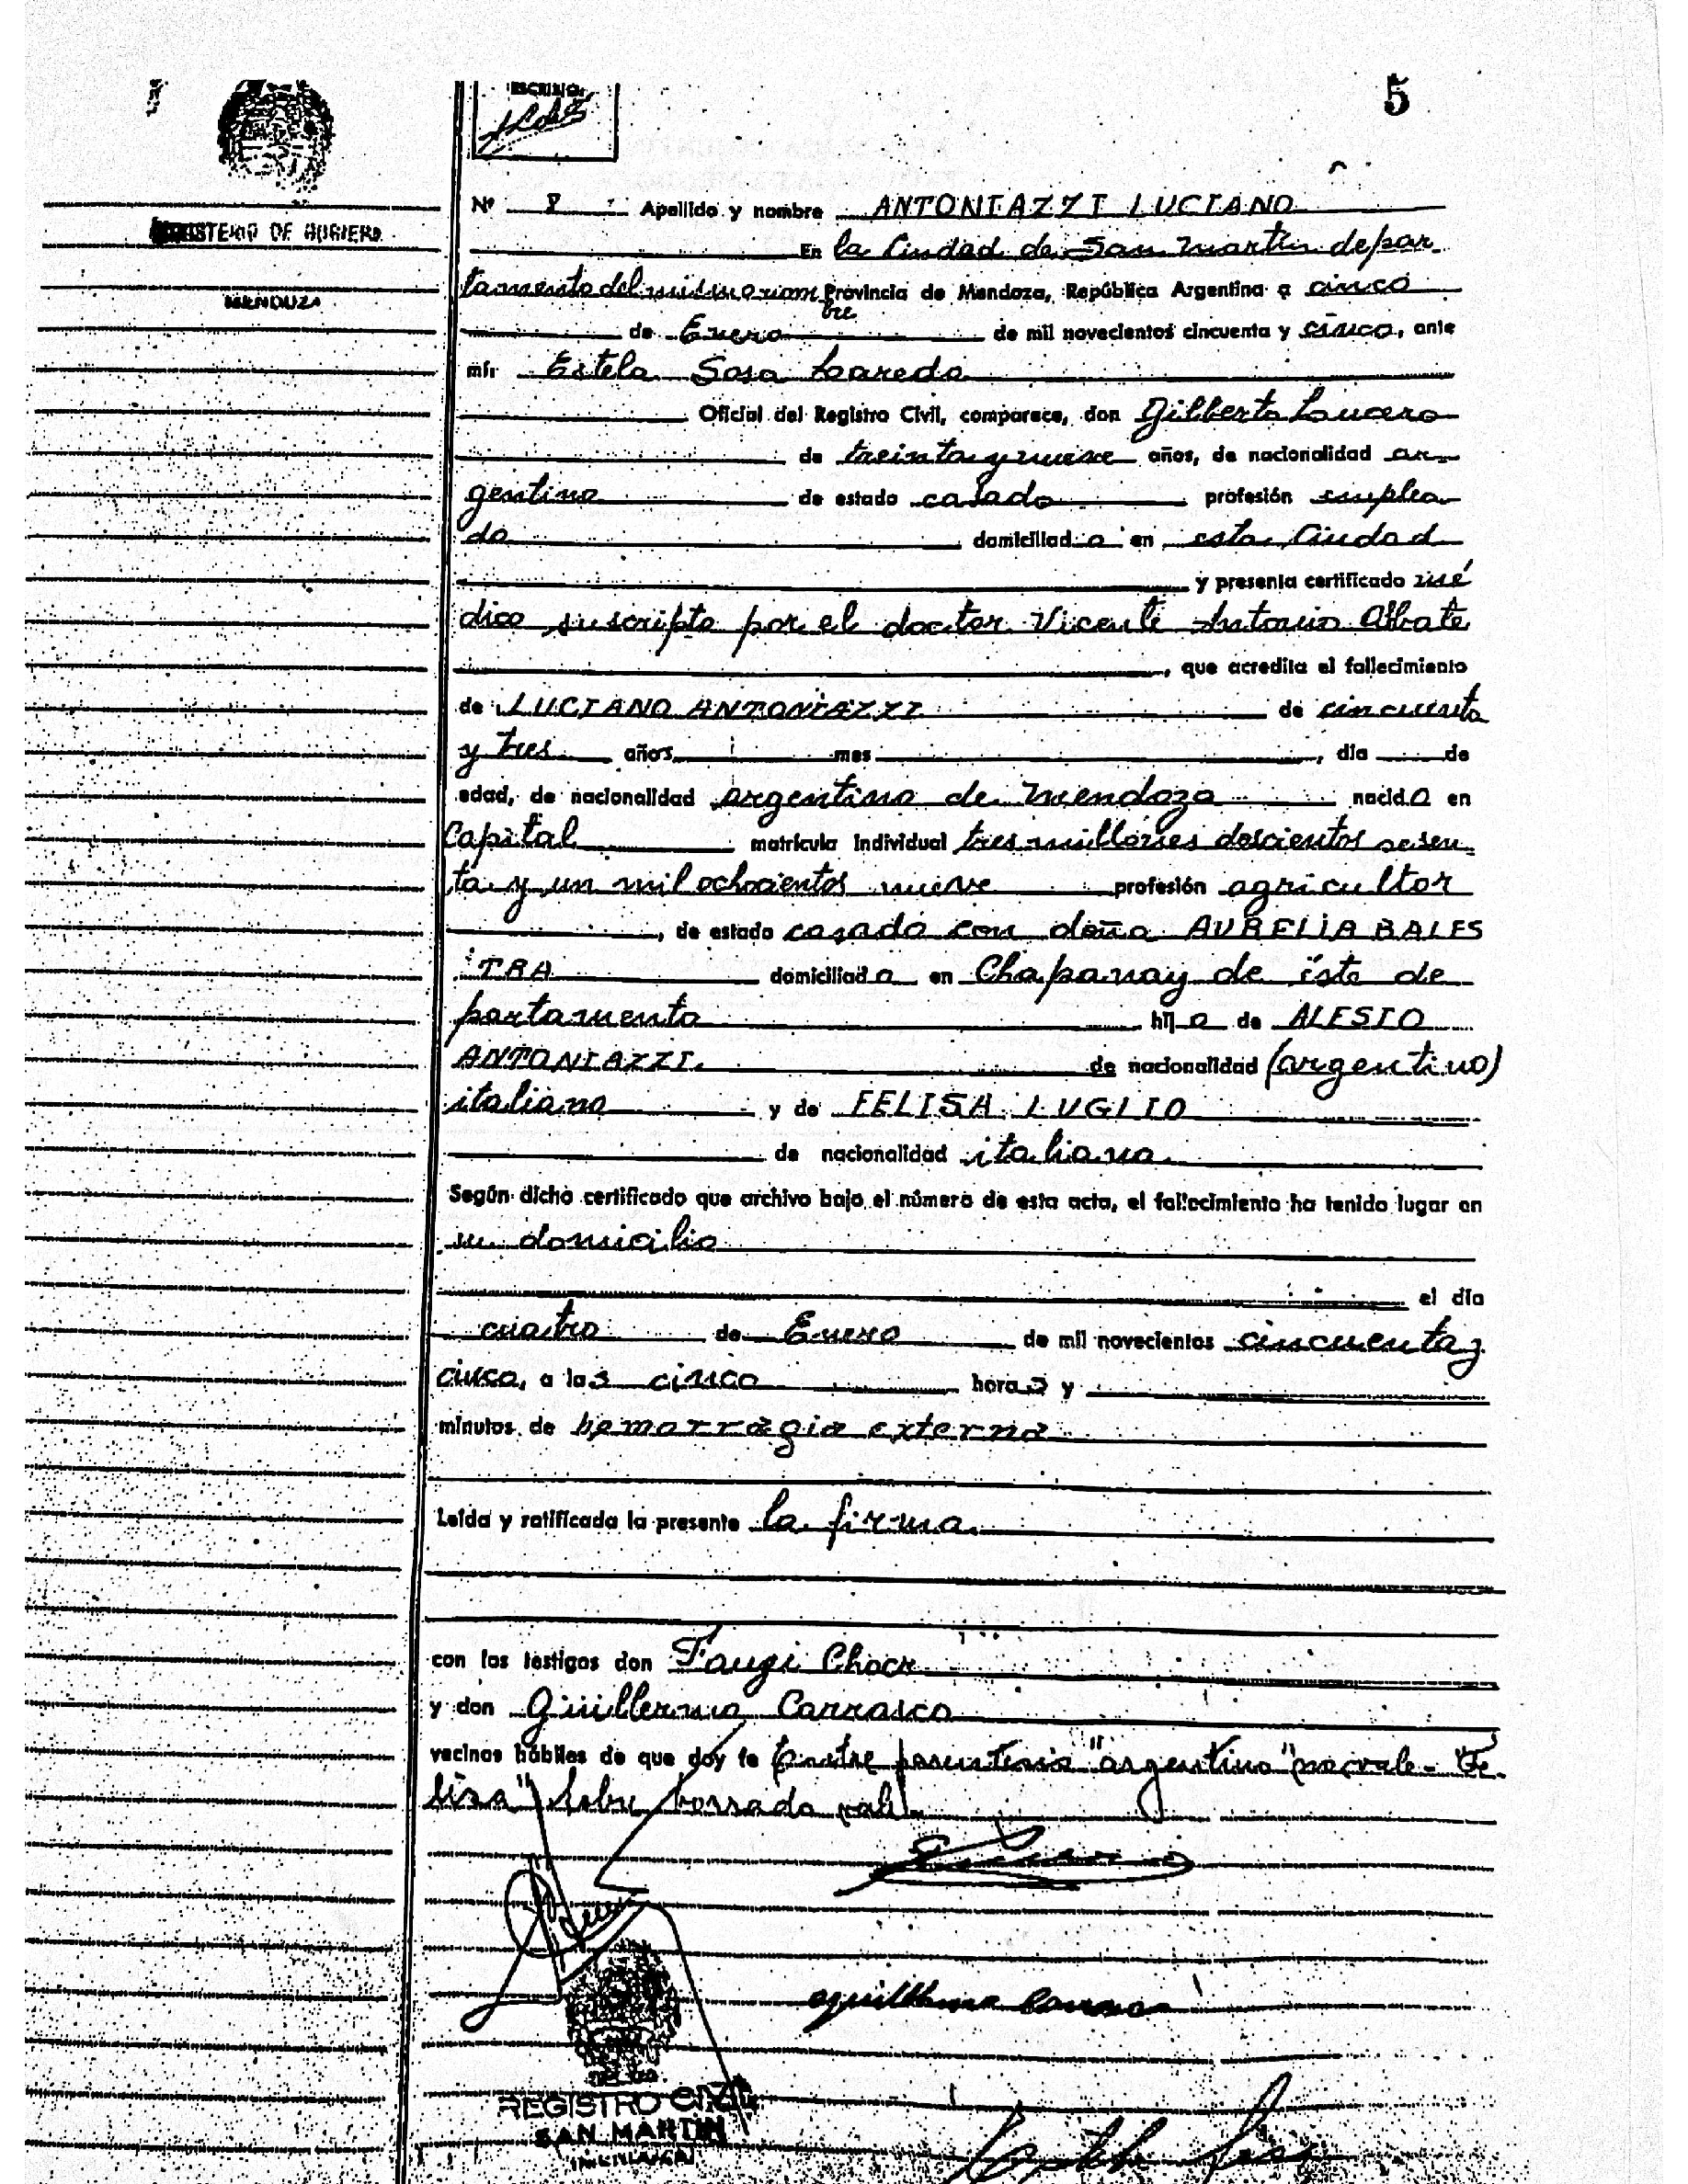 5
MINISTERIO DE GOBIERNO
MENDOZA
Nº 8 Apellido y nombre ANTONIAZZI LUCIANO
En la Ciudad de San Martín depar
tamento del mismo nom Provincia de Mendoza, República Argentina a cinco
bre
de Enero de mil novecientos cincuenta y cinco, ante
mí, Estela Sosa Laredo
Oficial del Registro Civil, comparece, don Gilberto Lucero
de treinta y nueve años, de nacionalidad ar-
gentino de estado casado profesión emplea
do domiciliado en esta Ciudad
y presenta certificado mé
dico suscripto por el doctor Vicente Antonio Abbate
, que acredita el fallecimiento
de LUCIANO ANTONIAZZI de cincuenta
y tres años mes , día de
edad, de nacionalidad argentino de Mendoza nacido en
Capital matrícula individual tres millones doscientos sesen
ta y un mil ochocientos nueve profesión agricultor
, de estado casado con doña AURELIA BALES
TRA domiciliado en Chapanay de éste de
partamento hijo de ALESIO
ANTONIAZZI de nacionalidad (argentino)
italiano y de FELISA LUGLIO
de nacionalidad italiana
Según dicho certificado que archivo bajo el número de esta acta, el fallecimiento ha tenido lugar en
su domicilio
el día
cuatro de Enero de mil novecientos cincuenta y
cinco, a las cinco horas y
minutos de hemorragia externa
Leída y ratificada la presente la firma
con los testigos don Fauzi Chocr
y don Guillermo Carrasco
vecinos hábiles de que doy fe Entre parentesis "argentino" no vale- "Fe
lisa" sobre borrado vale
REGISTRO CIVIL
SAN MARTIN